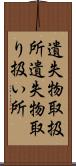 遺失物取扱
所遺失物取
り扱い所